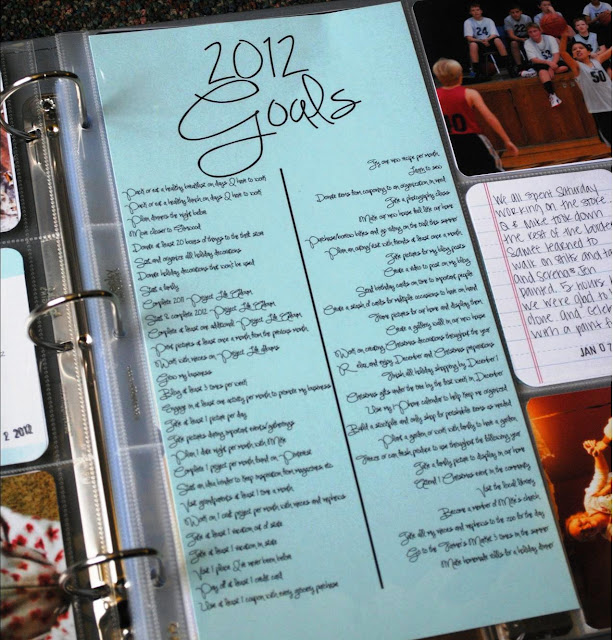 2012
Goals
Pack or eat a healthy breakfast on days I have to work
Pack or eat a healthy lunch on days I have to work
Plan dinners the night before
Move closer to
Donate at least 20 boxes of things to the thrift store
Sort and organize all holiday decorations
Donate holiday decorations that won't be used
Start a family
Complete 2011 Project Life Album
Start & complete 2012 Project Life Album
Complete at least one additional Project Life Album
Print pictures at least once a month from the previous month
Work with nieces on Project Life albums
Grow my business
Blog at least 3 times per week
Engage in at least one activity per month to promote my business
Take at least 1 picture per day
Take pictures during important events/gatherings
Plan 1 date night per month with
Complete 1 project per month found on Pinterest
Start an idea binder to keep inspiration from magazines etc.
Visit grandparents at least 1 time a month
Work on 1 craft project per month with nieces and nephews
Take at least 1 vacation out of state
Take at least 1 vacation in state
Visit 1 place I've never been before
Pay off at least 1 credit card
Use at least 1 coupon with every grocery purchase
Try one new recipe per month
Learn to sew
Donate items from couponing to an organization in need
Take a photography class
Make our new house feel like our home
Purchase/borrow bikes and go riding on the trail this summer
Plan an outing/visit with friends at least once a month
Take pictures for my blog posts
Create a video to post on my blog
Send birthday cards on time to important people
Create a stash of cards for multiple occasions to have on hand
Frame pictures for our home and display them
Create a gallery wall in our new house
Work on creating Christmas decorations throughout the year
Relax and enjoy December and Christmas preparations
Finish all holiday shopping by December 1
Christmas gifts under the tree by the first week in December
Use my iPhone calendar to help keep me organized
Build a stockpile and only shop for perishable items as needed
Plant a garden or work with family to have a garden
Freeze or can fresh produce to use throughout the following year
Take a family picture to display in our home
Attend 1 Christmas event in the community
Visit the local library
Become a member of
Take all my nieces and nephews to the zoo for the day
Go to the Farmer's Market 3 times in the summer
Make homemade rolls for a holiday dinner
24
50
We all spent Saturday
working on the store
took down
the rest of the
learned to
walk on stilts and
and
painted. 5 hours
we were glad to
done and
with a paint
JAN 0
2 2012